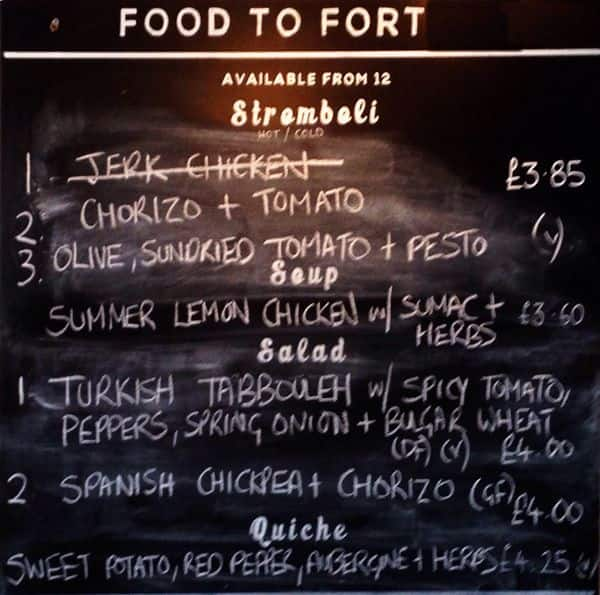 FOOD TO FORT
AVAILABLE FROM 12
Stromboli
HOT / COLD
1. JERK CHICKEN £3.85
2. CHORIZO + TOMATO
3. OLIVE, SUNDRIED TOMATO + PESTO (V)
Soup
SUMMER LEMON CHICKEN w/ SUMAC + £3.60
HERBS
Salad
1 TURKISH TABBOULEH w/ SPICY TOMATO,
PEPPERS, SPRING ONION + BULGAR WHEAT
(DF) (V) £4.00
2 SPANISH CHICKPEA + CHORIZO (GF) £4.00
Quiche
SWEET POTATO, RED PEPPER, AUBERGINE + HERBS £4.25 (V)